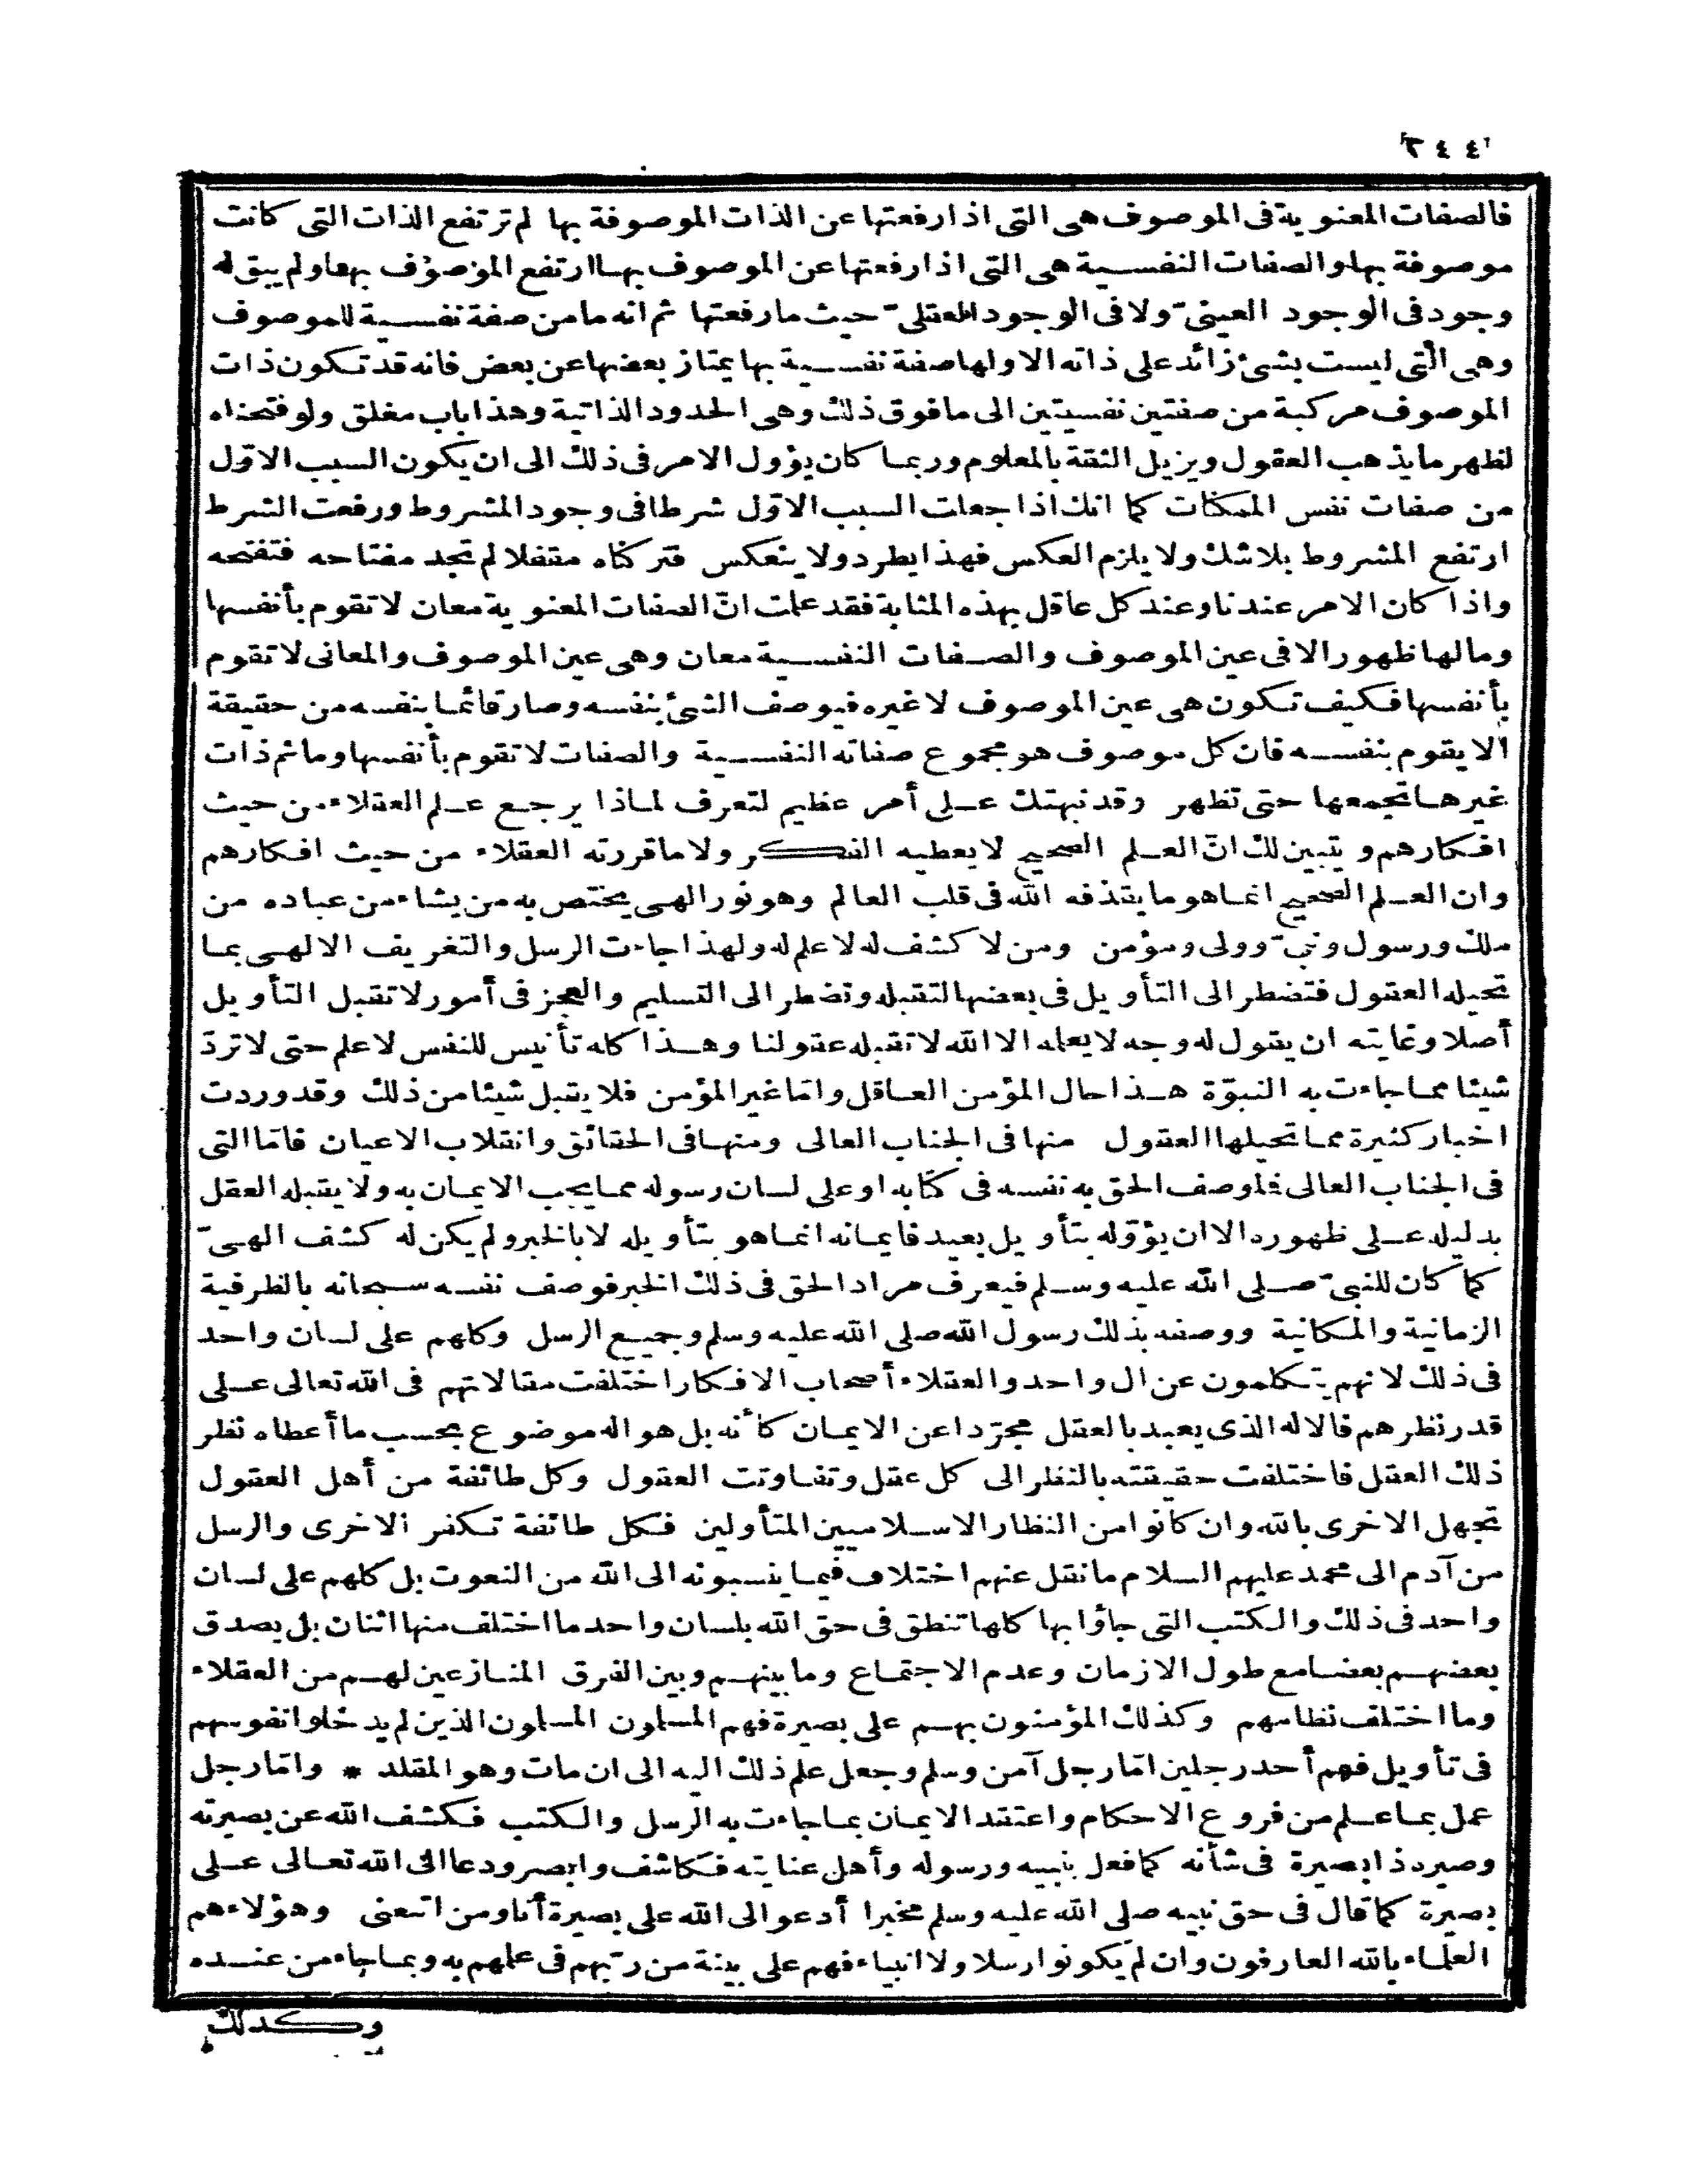 ٢٤٤
فالصفات المعنوية فى الموصوف هى التى اذا رفعتها عن الذات الموصوفة بها لم ترتفع الذات التى كانت
موصوفة بها والصفات النفسية هى التى اذا رفعتها عن الموصوف بها ارتفع الموصوف بها ولم يبق له
وجود فى الوجود العينىّ ولا فى الوجود العقلىّ حيث ما رفعتها ثم انه ما من صفة نفسية للموصوف
وهى التى ليست بشئ زائد على ذاته الا ولها صفة نفسية بها يمتاز بعضها عن بعض فانه قد تكون ذات
الموصوف مركبة من صفتين نفسيتين الى ما فوق ذلك وهى الحدود الذاتية وهذا باب مغلق ولو فتحناه
لظهر ما يذهب العقول ويزيل الثقة بالمعلوم وربما كان يؤول الامر فى ذلك الى ان يكون السبب الاوّل
من صفات نفس الممكنات كما انك اذا جعلت السبب الاوّل شرطا فى وجود المشروط ورفعت الشرط
ارتفع المشروط بلا شك ولا يلزم العكس فهذا يطرد ولا ينعكس فتركناه مقفلا لم تجد مفتاحه فتفتحه
واذا كان الامر عندنا وعند كل عاقل بهذه المثابة فقد علمت انّ الصفات المعنوية معان لا تقوم بأنفسها
وما لها ظهور الا فى عين الموصوف والصفات النفسية معان وهى عين الموصوف والمعانى لا تقوم
بأنفسها فكيف تكون هى عين الموصوف لا غيره فيوصف الشئ بنفسه وصار قائما بنفسه من حقيقة
الا يقوم بنفسه فان كل موصوف هو مجموع صفاته النفسية والصفات لا تقوم بأنفسها وما ثم ذات
غيرها تجمعها حتى تظهر وقد نبهتك على أمر عظيم لتعرف لماذا يرجع علم العقلاء من حيث
افكارهم ويتبين لك انّ العلم الصحيح لا يعطيه الفكر ولا ما قررته العقلاء من حيث افكارهم
وان العلم الصحيح انما هو ما يقذفه الله فى قلب العالم وهو نور الهى يختص به من يشاء من عباده من
ملك ورسول ونبىّ وولى ومؤمن ومن لا كشف له لا علم له ولهذا جاءت الرسل والتعريف الالهى بما
تحيله العقول فتضطر الى التأويل فى بعضها لتقبله وتضطر الى التسليم والعجز فى أمور لا تقبل التأويل
أصلا وغايته ان يقول له وجه لا يعلمه الا الله لا تقبله عقولنا وهذا كله تأنيس للنفس لا علم حتى لا تردّ
شيئا مما جاءت به النبوّة هذا حال المؤمن العاقل وامّا غير المؤمن فلا يقبل شيئا من ذلك وقد وردت
اخبار كثيرة مما تحيلها العقول منها فى الجناب العالى ومنها فى الحقائق وانقلاب الاعيان فامّا التى
فى الجناب العالى فما وصف الحق به نفسه فى كتابه او على لسان رسوله مما يجب الايمان به ولا يقبله العقل
بدليله على ظهوره الا ان يؤوّله بتأويل بعيد فايمانه انما هو بتأويله لا بالخبر ولم يكن له كشف الهىّ
كما كان للنبىّ صلى الله عليه وسلم فيعرف مراد الحق فى ذلك الخبر فوصف نفسه سبحانه بالظرفية
الزمانية والمكانية ووصفه بذلك رسول الله صلى الله عليه وسلم وجميع الرسل وكلهم على لسان واحد
فى ذلك لانهم يتكلمون عن ال واحد والعقلاء أصحاب الافكار اختلفت مقالاتهم فى الله تعالى على
قدر نظرهم فالاله الذى يعبد بالعقل مجرّدا عن الايمان كأنه بل هو اله موضوع بحسب ما أعطاه نظر
ذلك العقل فاختلفت حقيقته بالنظر الى كل عقل وتفاوتت العقول وكل طائفة من أهل العقول
تجهل الاخرى بالله وان كانوا من النظار الاسلاميين المتأولين فكل طائفة تكفر الاخرى والرسل
من آدم الى محمد عليهم السلام ما نقل عنهم اختلاف فيما ينسبونه الى الله من النعوت بل كلهم على لسان
واحد فى ذلك والكتب التى جاؤا بها كلها تنطق فى حق الله بلسان واحد ما اختلف منها اثنان بل يصدق
بعضهم بعضا مع طول الازمان وعدم الاجتماع وما بينهم وبين الفرق المنازعين لهم من العقلاء
وما اختلف نظامهم وكذلك المؤمنون بهم على بصيرة فهم المسلمون المسلمون الذين لم يدخلوا نفوسهم
فى تأويل فهم أحد رجلين امّا رجل آمن وسلم وجعل علم ذلك اليه الى ان مات وهو المقلد * وامّا رجل
عمل بما علم من فروع الاحكام واعتقد الايمان بما جاءت به الرسل والكتب فكشف الله عن بصيرته
وصيره ذا بصيرة فى شأنه كما فعل بنبيه ورسوله وأهل عنايته فكاشف وابصر ودعا الى الله تعالى على
بصيرة كما قال فى حق نبيه صلى الله عليه وسلم مخبرا أدعو الى الله على بصيرة أنا ومن اتبعنى وهؤلاء هم
العلماء بالله العارفون وان لم يكونوا رسلا ولا انبياء فهم على بينة من ربهم فى علمهم به وبما جاء من عنده
وكذلك